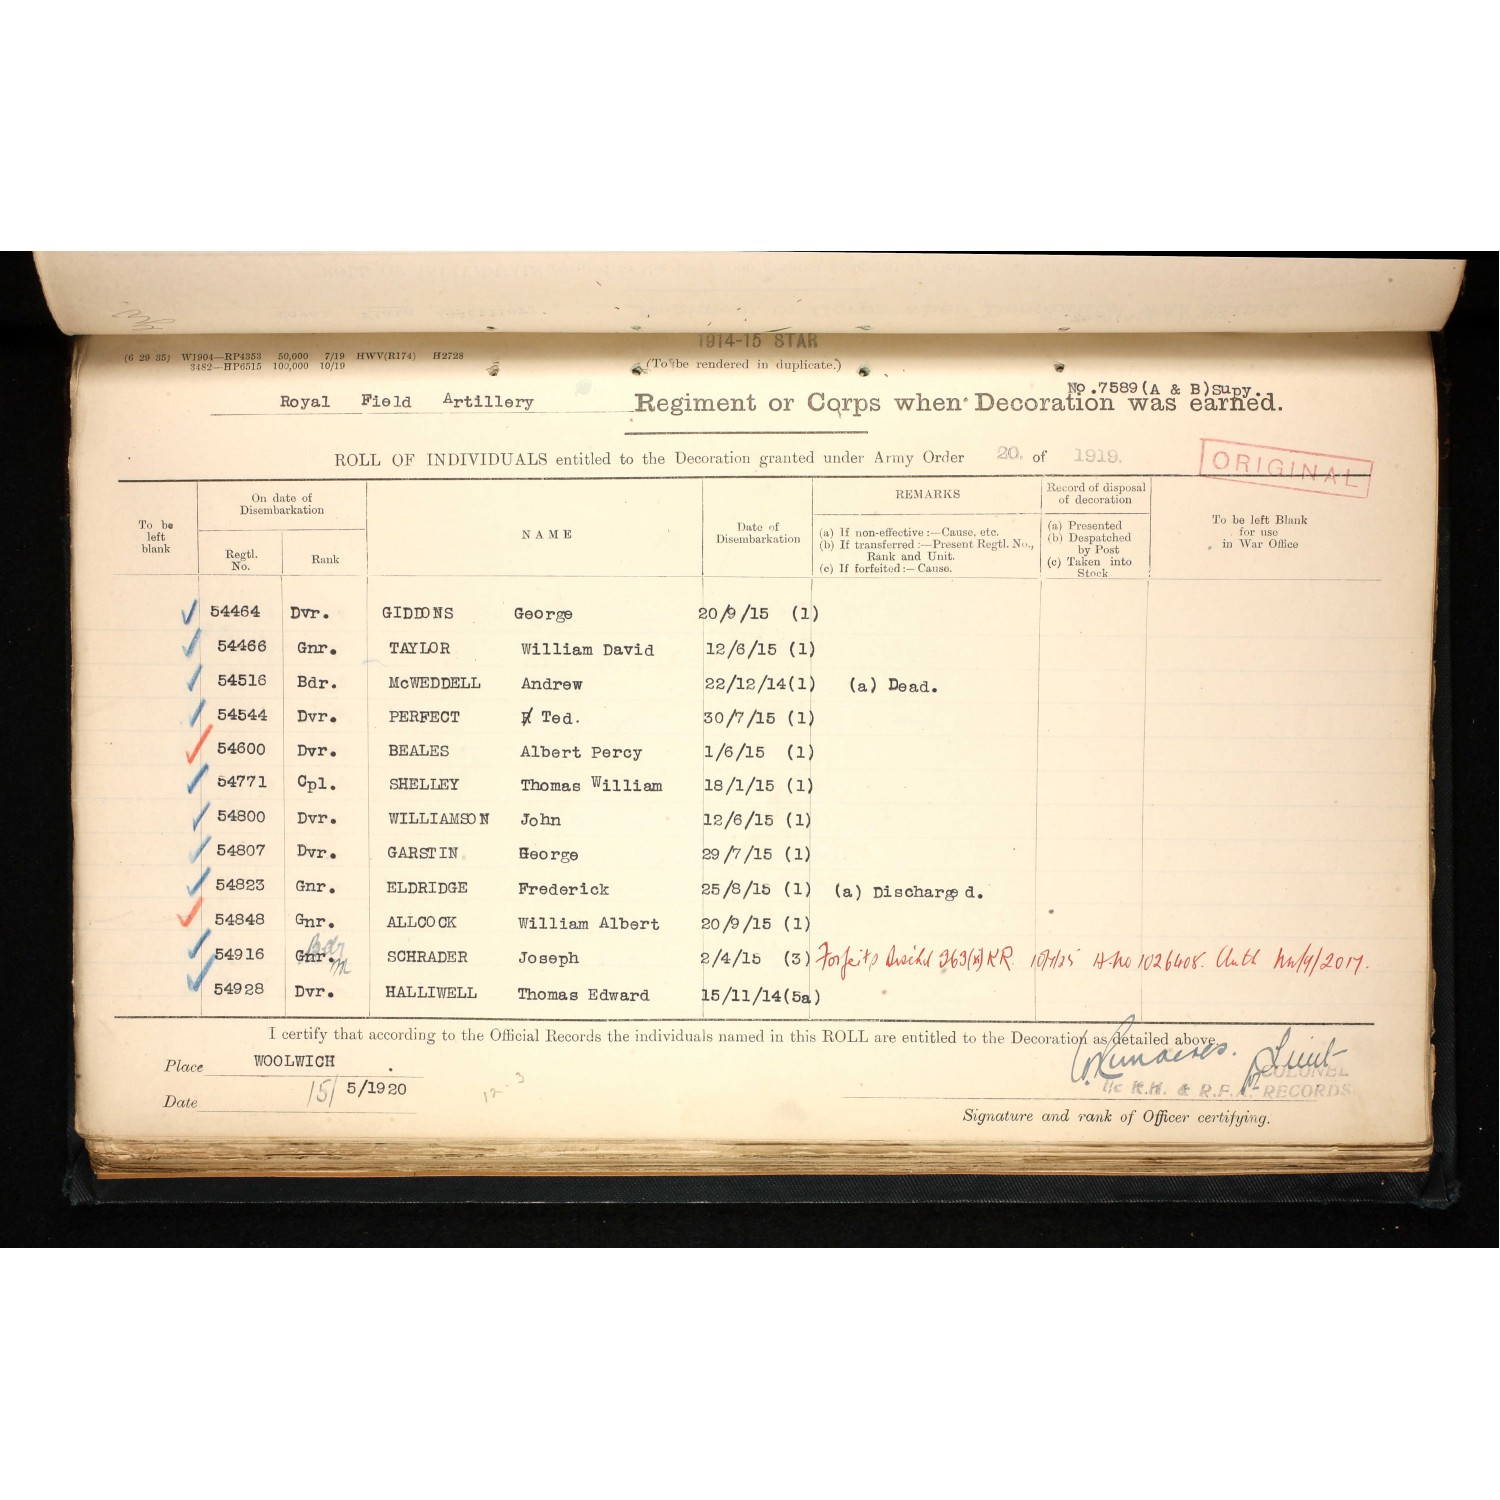 1914-15 STAR
(6 29 35) W1904—RP4353 50,000 7/19 HWV(R174) H2728
3482—HP6515 100,000 10/19
(To be rendered in duplicate.)
No.7589(A & B)Supy.
Royal Field Artillery Regiment or Corps when Decoration was earned.
ROLL OF INDIVIDUALS entitled to the Decoration granted under Army Order 20. of 1919.
ORIGINAL
To be left blank
On date of Disembarkation
Regtl. No.
Rank
NAME
Date of Disembarkation
REMARKS
(a) If non-effective:—Cause, etc.
(b) If transferred:—Present Regtl. No., Rank and Unit.
(c) If forfeited:—Cause.
Record of disposal of decoration
(a) Presented
(b) Despatched by Post
(c) Taken into Stock
To be left Blank for use in War Office
54464 Dvr. GIDDONS George 20/9/15 (1)
54466 Gnr. TAYLOR William David 12/6/15 (1)
54516 Bdr. McWEDDELL Andrew 22/12/14(1) (a) Dead.
54544 Dvr. PERFECT Ted. 30/7/15 (1)
54600 Dvr. BEALES Albert Percy 1/6/15 (1)
54771 Cpl. SHELLEY Thomas William 18/1/15 (1)
54800 Dvr. WILLIAMSON John 12/6/15 (1)
54807 Dvr. GARSTIN George 29/7/15 (1)
54823 Gnr. ELDRIDGE Frederick 25/8/15 (1) (a) Discharged.
54848 Gnr. ALLCOCK William Albert 20/9/15 (1)
54916 Gnr. Bdr SCHRADER Joseph 2/4/15 (3) 363 KR. 1026408. Auth 2017.
54928 Dvr. HALLIWELL Thomas Edward 15/11/14(5a)
I certify that according to the Official Records the individuals named in this ROLL are entitled to the Decoration as detailed above.
Place WOOLWICH
Date 15/ 5/1920
12-3
Lieut
COLONEL
i/c R.H. & R.F.A. RECORDS.
Signature and rank of Officer certifying.